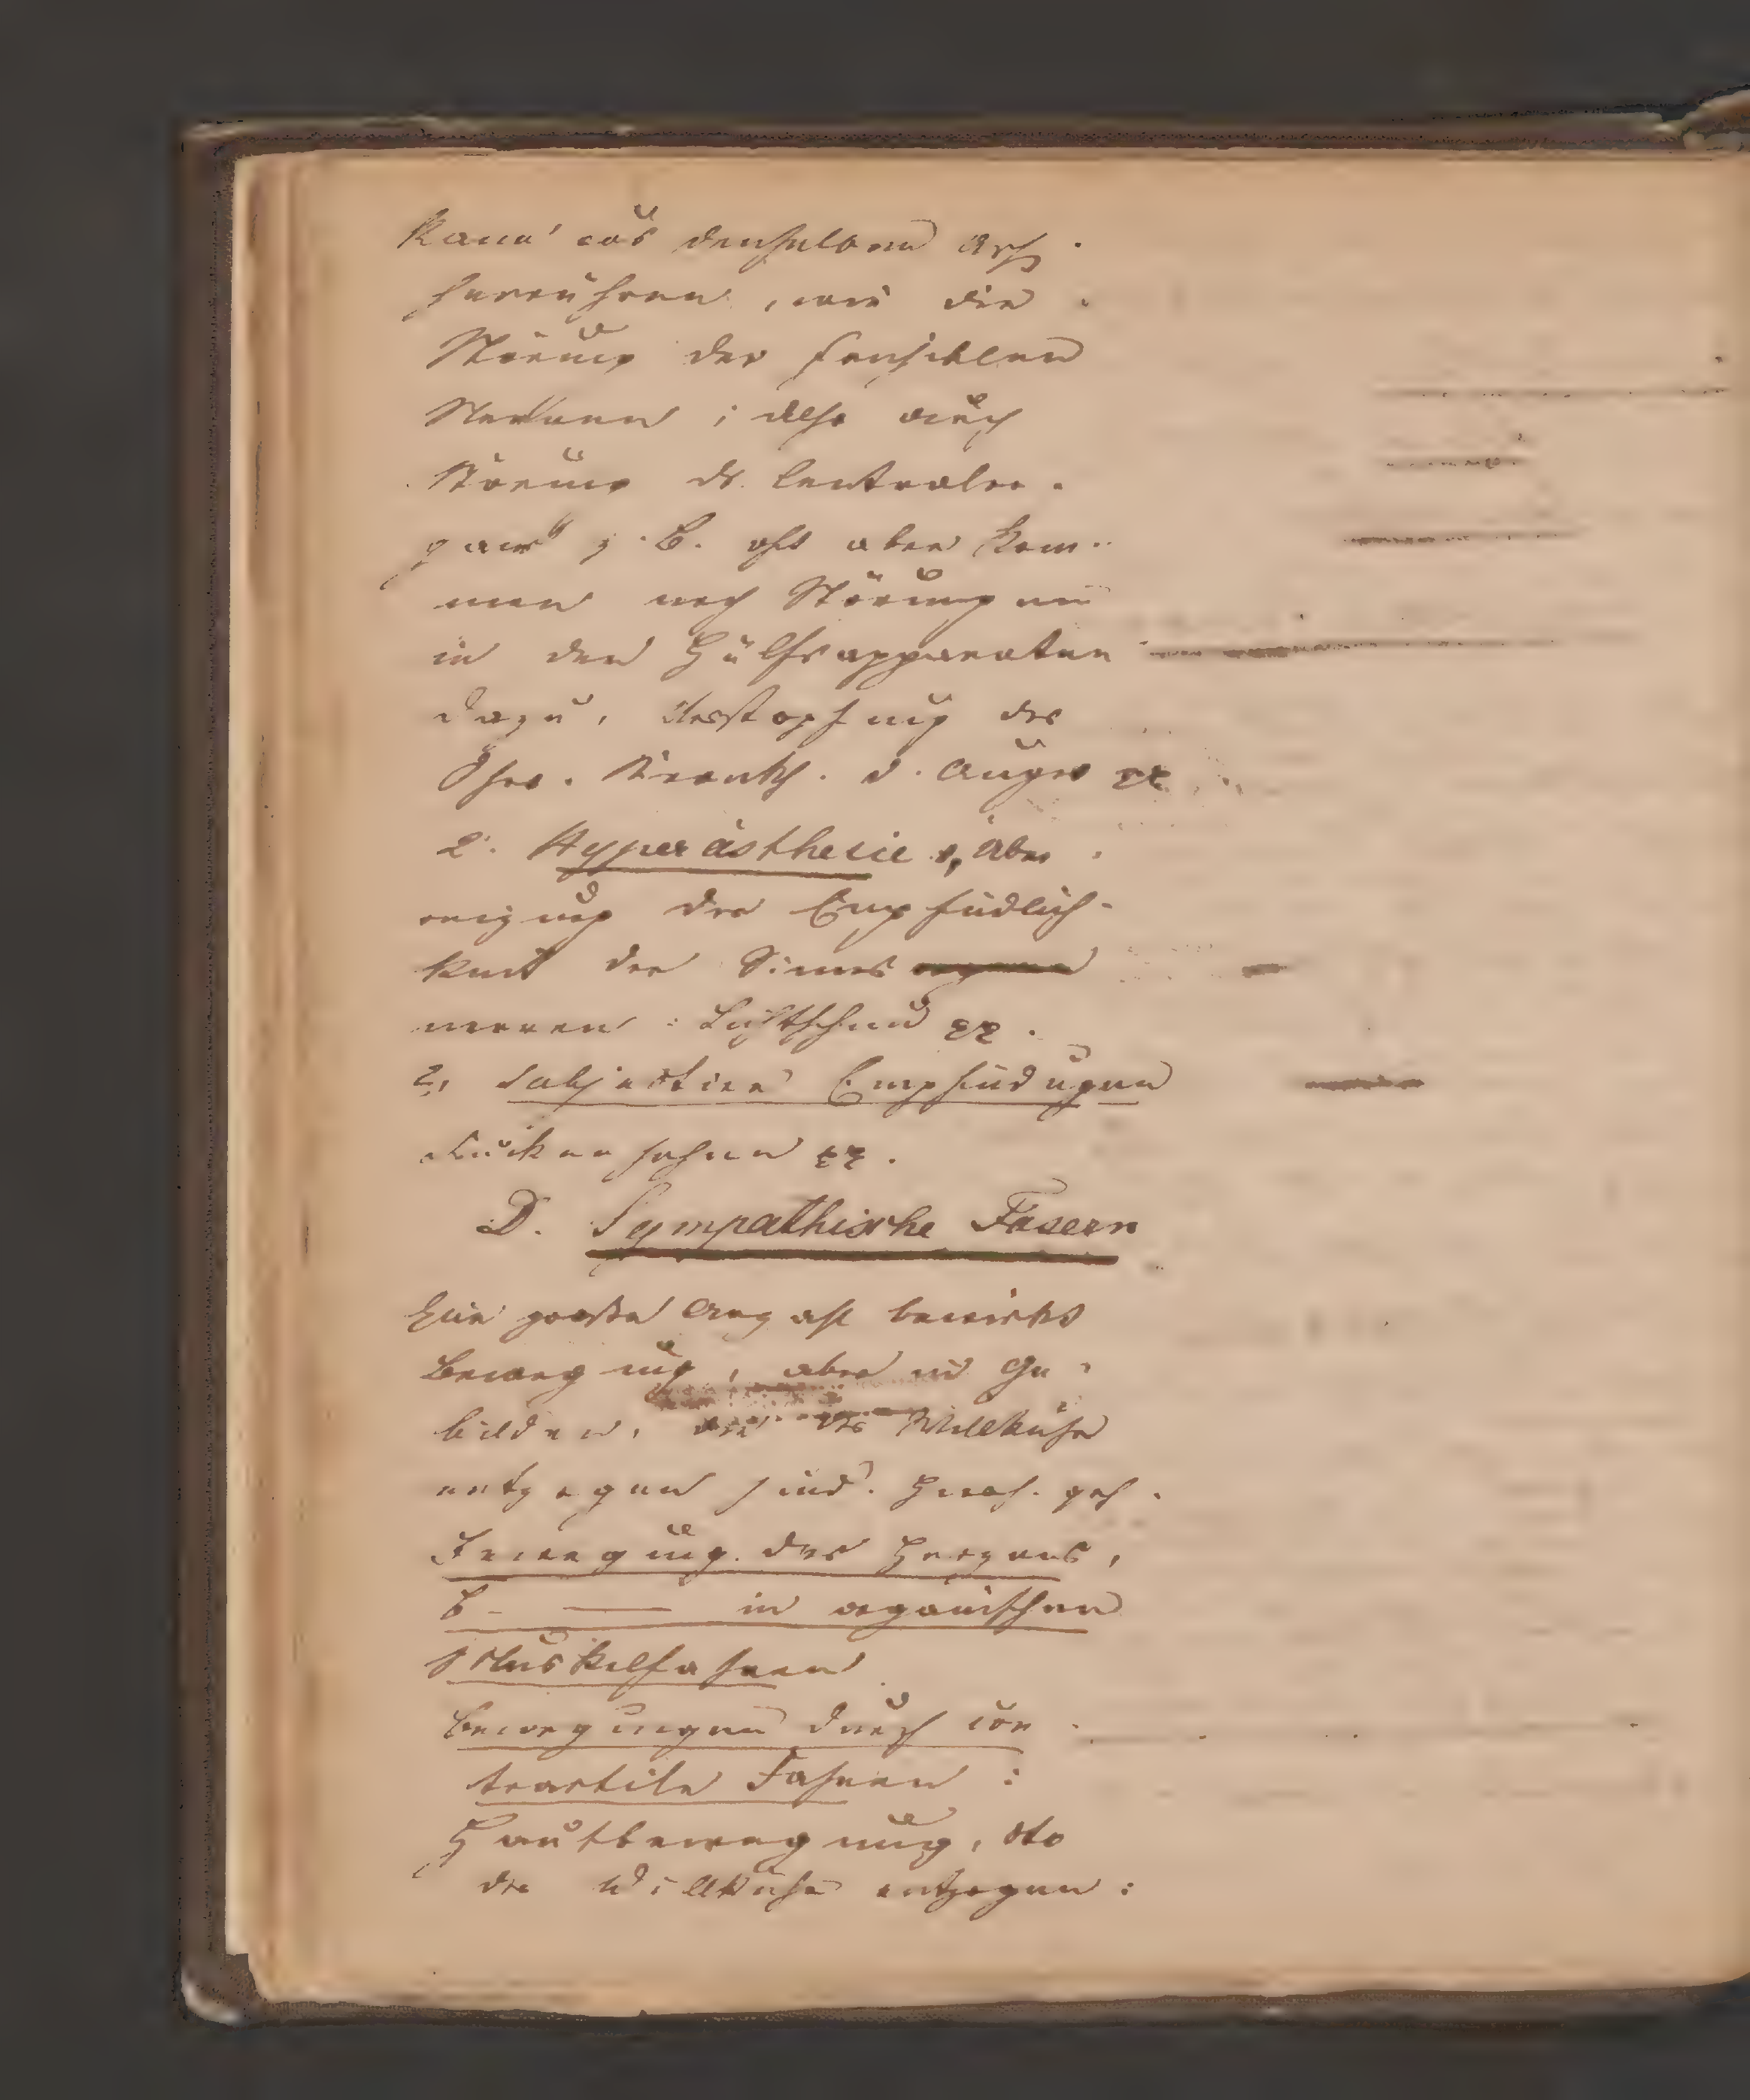 kann aus denselben
herrühren, wie die
Störung der sensiblen
Nerven; also durch
Störung ds. Centralor-
gans z. B. oft aber kom-
men noch Störungen
in den Hülfsapparaten
dazu, Verstopfung des
Ohrs. Krankh. d. Auges
2. Hyperästhesie, Über-
reizung der Empfindlich-
keit der Sinnes
nerven: Lichtscheu
2, Subjective Empfindungen
Mückensehen
D. Sympathische Fasern
Eine große Anzahl bewirkt
Bewegung, aber in Ge-
bilden, die der Willkühr
entzogen sind.
Bewegung des Herzens,
B- — in organischen
Muskelfasern
Bewegungen durch con-
tractile Fasern:
Hautbewegung,
der Willkühr entzogen: